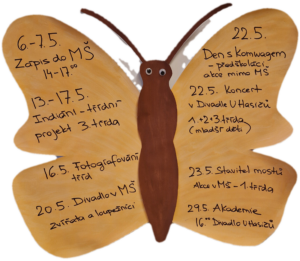 6-7.5.
Zápis do MŠ
14-17⁰⁰
13-17.5.
Indiáni - třídní
projekt 3. třída
16.5. Fotografování
tříd
20.5. Divadlo v MŠ
Zvířátka a loupežníci
22.5.
Den s Komwagem
- předškoláci
akce mimo MŠ
22.5. Koncert
v Divadle U Hasičů
1+2+3 třída
(mladší děti)
23.5. Stavitel mostů
Akce v MŠ - 1. třída
29.5. Akademie
16.⁰⁰ Divadlo U Hasičů